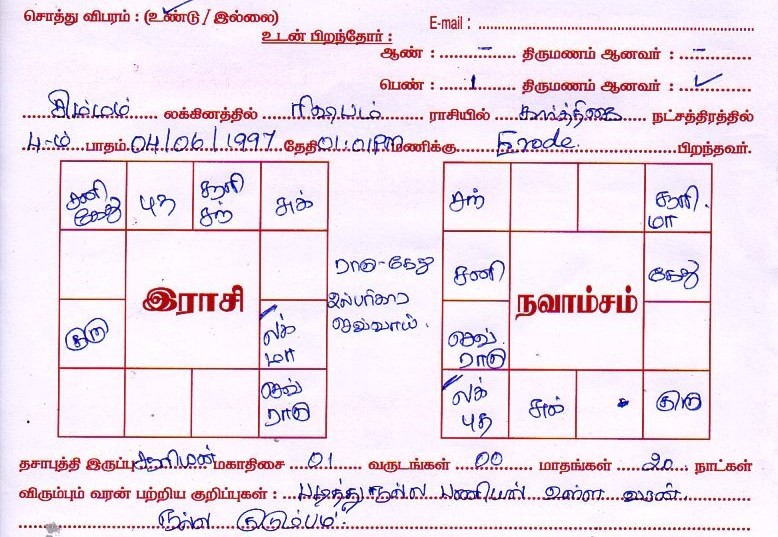 சொத்து விபரம் : (உண்டு / இல்லை)
E-mail :
உடன் பிறந்தோர் :
ஆண் : - திருமணம் ஆனவர் : -
பெண் : 1 திருமணம் ஆனவர் : ✓
சிம்மம் லக்கினத்தில் ரிஷபம் ராசியில் கார்த்திகை நட்சத்திரத்தில்
4-ம் பாதம் 04/06/1997 தேதி 01:01PM மணிக்கு Erode. பிறந்தவர்.
சனி கேது புத சூரி சந் சுக்
சந் சூரி. மா
ராகு - கேது
சனி கேது
இராசி
பரிகார
நவாம்சம்
செவ்வாய்.
குரு லக் மா
செவ் ராகு
செவ் ராகு
லக் புத சுக் குரு
தசாபுத்தி இருப்பு சூரியன் மகாதிசை 01 வருடங்கள் 00 மாதங்கள் 20 நாட்கள்
விரும்பும் வரன் பற்றிய குறிப்புகள் : படித்து நல்ல பணியில் உள்ள வரன்
நல்ல குடும்பம்.